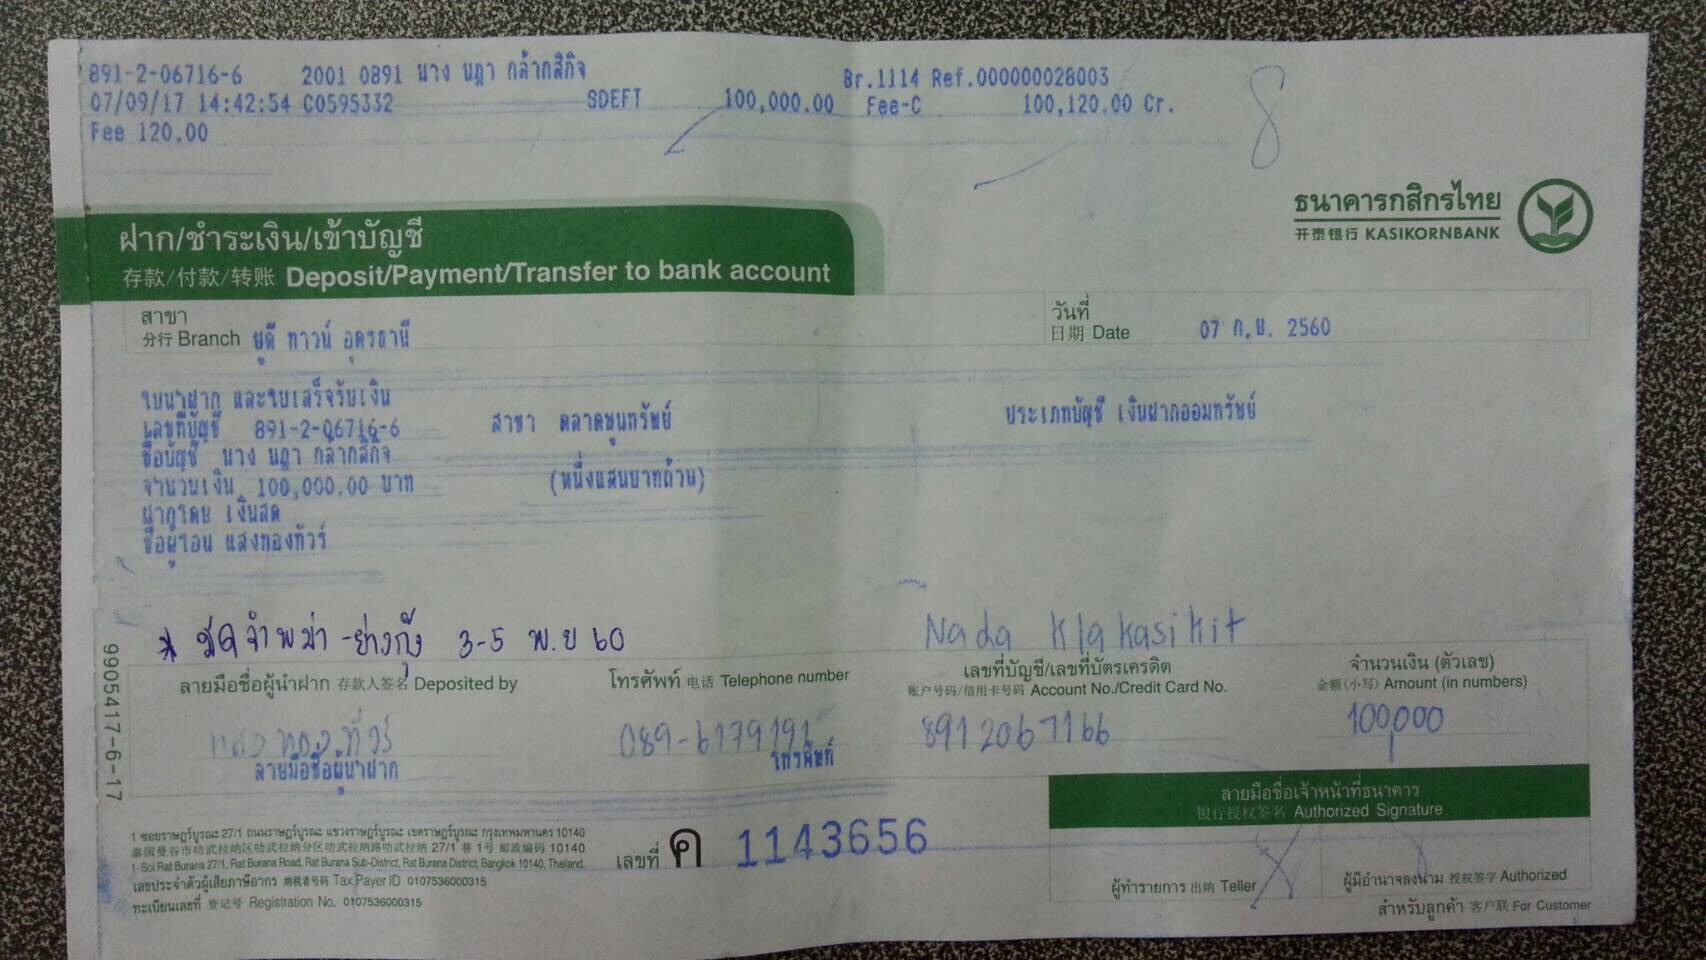 891-2-06716-6 2001 0891 นาง นฎา กล้ากสิกิจ Br.1114 Ref.000000028003
07/09/17 14:42:54 C0595332 SDEFT 100,000.00 Fee-C 100,120.00 Cr.
Fee 120.00
8
ธนาคารกสิกรไทย
开泰银行 KASIKORNBANK
ฝาก/ชำระเงิน/เข้าบัญชี
存款/付款/转账 Deposit/Payment/Transfer to bank account
สาขา
分行 Branch ยูดี ทาวน์ อุดรธานี
วันที่
日期 Date 07 ก.ย. 2560
ใบนำฝาก และใบเสร็จรับเงิน
เลขที่บัญชี 891-2-06716-6 สาขา ตลาดชูนทรัพย์ ประเภทบัญชี เงินฝากออมทรัพย์
ชื่อบัญชี นาง นฎา กล้ากสิกิจ
จำนวนเงิน 100,000.00 บาท (หนึ่งแสนบาทถ้วน)
ฝากโดย เงินสด
ชื่อผู้โอน แสงทองทัวร์
* มัดจำพม่า -ย่างกุ้ง 3-5 พ.ย 60
Nada Klakasikit
ลายมือชื่อผู้นำฝาก 存款人签名 Deposited by
โทรศัพท์ 电话 Telephone number
เลขที่บัญชี/เลขที่บัตรเครดิต
账户号码/信用卡号码 Account No./Credit Card No.
จำนวนเงิน (ตัวเลข)
金额(小写) Amount (in numbers)
แสงทองทัวร์ 089-6179191 8912067166 100,000
ลายมือชื่อผู้นำฝาก โทรศัพท์
9905417-6-17
ลายมือชื่อเจ้าหน้าที่ธนาคาร
银行授权签名 Authorized Signature
1 ซอยราษฎร์บูรณะ 27/1 ถนนราษฎร์บูรณะ แขวงราษฎร์บูรณะ เขตราษฎร์บูรณะ กรุงเทพมหานคร 10140
泰国曼谷市叻武拉纳区叻武拉纳分区叻武拉纳路叻武拉纳 27/1 巷 1号 邮政编码 10140
1 Soi Rat Burana 27/1, Rat Burana Road, Rat Burana Sub-District, Rat Burana District, Bangkok 10140, Thailand.
เลขประจำตัวผู้เสียภาษีอากร 纳税者号码 Tax Payer ID 0107536000315
ทะเบียนเลขที่ 登记号 Registration No. 0107536000315
เลขที่ ค 1143656
ผู้ทำรายการ 出纳 Teller
ผู้มีอำนาจลงนาม 授权签字 Authorized
สำหรับลูกค้า 客户联 For Customer